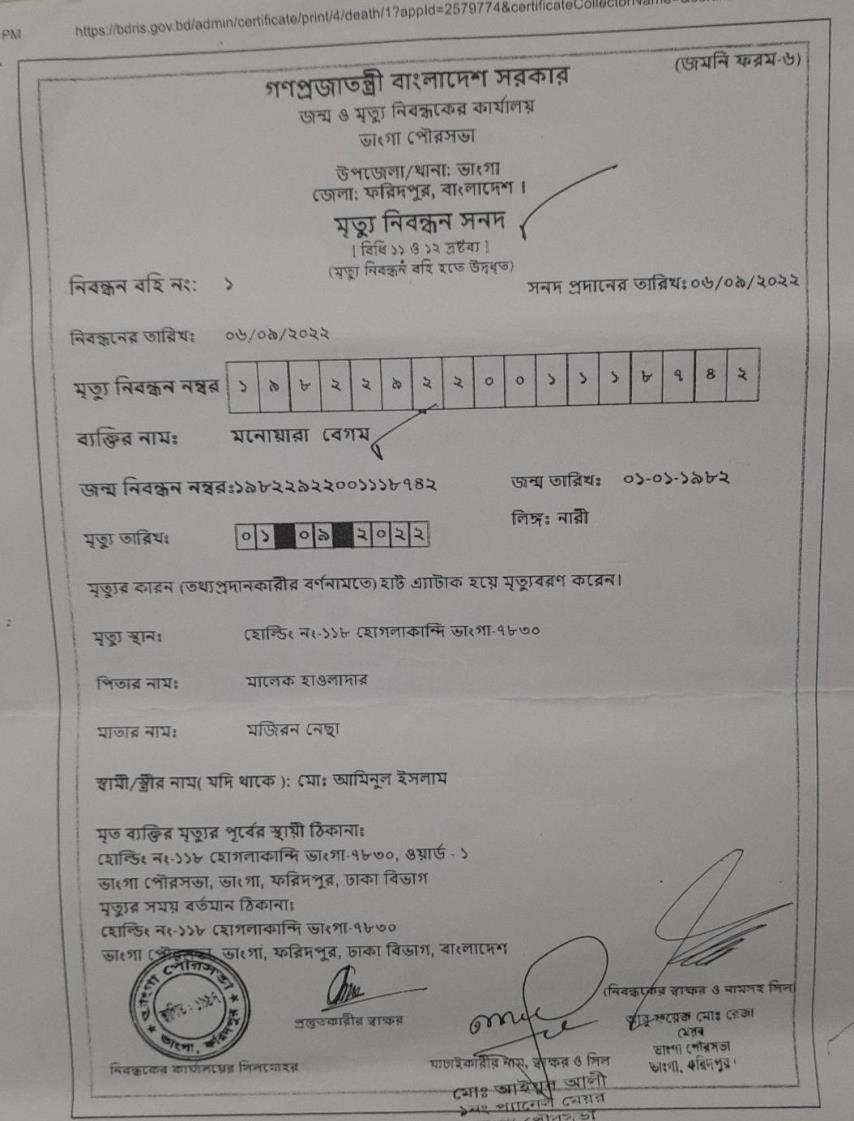 PM https://bdris.gov.bd/admin/certificate/print/4/death/1?appId=2579774&certificateCollectorName=
(জমনি ফরম-৬)
গণপ্রজাতন্ত্রী বাংলাদেশ সরকার
জন্ম ও মৃত্যু নিবন্ধকের কার্যালয়
ভাংগা পৌরসভা
উপজেলা/থানা: ভাংগা
জেলা: ফরিদপুর, বাংলাদেশ ।
মৃত্যু নিবন্ধন সনদ
[ বিধি ১১ ও ১২ দ্রষ্টব্য ]
(মৃত্যু নিবন্ধন বহি হতে উদ্ধৃত)
নিবন্ধন বহি নং: ১ সনদ প্রদানের তারিখ: ০৬/০৯/২০২২
নিবন্ধনের তারিখ: ০৬/০৯/২০২২
মৃত্যু নিবন্ধন নম্বর ১ ৯ ৮ ২ ২ ৯ ২ ২ ০ ০ ১ ১ ১ ৮ ৭ ৪ ২
ব্যক্তির নাম: মনোয়ারা বেগম
জন্ম নিবন্ধন নম্বর:১৯৮২২৯২২০০১১১৮৭৪২ জন্ম তারিখ: ০১-০১-১৯৮২
লিঙ্গ: নারী
মৃত্যু তারিখ: ০১ ০৯ ২০২২
মৃত্যুর কারন (তথ্যপ্রদানকারীর বর্ণনামতে) হার্ট এ্যাটাক হয়ে মৃত্যুবরণ করেন।
মৃত্যু স্থান: হোল্ডিং নং-১১৮ হোগলাকান্দি ভাংগা-৭৮৩০
পিতার নাম: মালেক হাওলাদার
মাতার নাম: মজিরন নেছা
স্বামী/স্ত্রীর নাম( যদি থাকে ): মোঃ আমিনুল ইসলাম
মৃত ব্যক্তির মৃত্যুর পূর্বের স্থায়ী ঠিকানা:
হোল্ডিং নং-১১৮ হোগলাকান্দি ভাংগা-৭৮৩০, ওয়ার্ড - ১
ভাংগা পৌরসভা, ভাংগা, ফরিদপুর, ঢাকা বিভাগ
মৃত্যুর সময় বর্তমান ঠিকানা:
হোল্ডিং নং-১১৮ হোগলাকান্দি ভাংগা-৭৮৩০
ভাংগা পৌরসভা, ভাংগা, ফরিদপুর, ঢাকা বিভাগ, বাংলাদেশ
ভাংগা পৌরসভা
ভাংগা, ফরিদপুর
(নিবন্ধকের স্বাক্ষর ও নামসহ সিল)
প্রস্তুতকারীর স্বাক্ষর
আবু ফয়েজ মোঃ রেজা
মেয়র
ভাংগা পৌরসভা
ভাংগা, ফরিদপুর।
নিবন্ধকের কার্যালয়ের সিলমোহর
যাচাইকারীর নাম, স্বাক্ষর ও সিল
মোঃ আইয়ুব আলী
১নং প্যানেল মেয়র
পৌরসভা